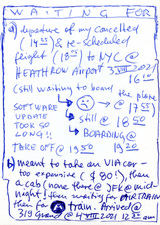 WAITING FOR
a) departure of my cancelled
(14⁵⁵) & re-scheduled
freight (18⁰⁵) to NYC @
HEATHROW Airport 3 VIII 2021
16²⁰
(still waiting to board the plane
@ 17⁵⁵
SOFTWARE
UPDATE
TOOK SO
LONG!!
still @ 18⁵⁰
BOARDING @
TAKE OFF @ 19⁵⁰ 19²⁰
b) meant to take an VIA car -
too expensive ($80!), then
a cab (none there @ JFK @ mid-
night), then waiting for AIRTRAIN
then for train. Arrived @
319 Grand @ 4 VIII 2021 12³⁰ am